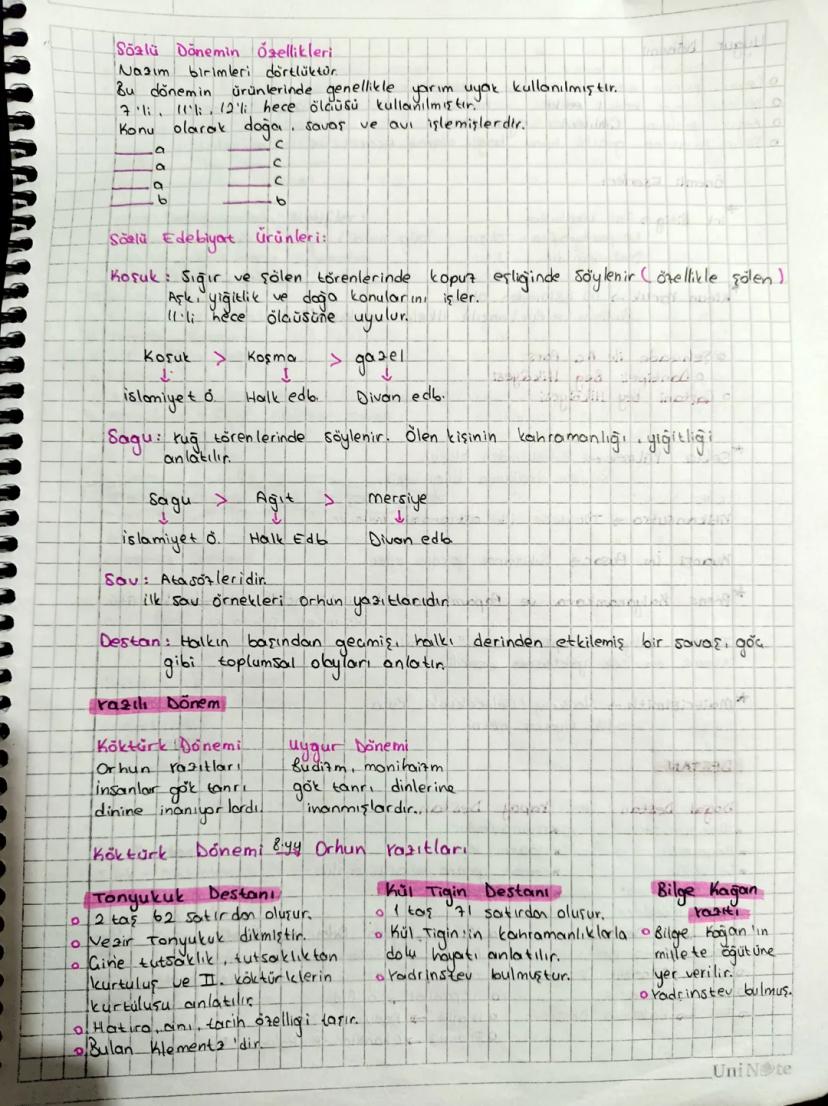 Sözlü Dönemin Özellikleri
Nazım birimleri dörtlüktür.
Bu dönemin ürünlerinde genellikle yarım uyak kullanılmıştır.
7'li, 11'li, 12'li hece ölçüsü kullanılmıştır.
Konu olarak doğa, savaş ve avı işlemişlerdir.
a c
a c
a c
b b
Sözlü Edebiyat Ürünleri:
Koşuk: Sığır ve şölen törenlerinde kopuz eşliğinde söylenir (özellikle şölen)
Aşk, yiğitlik ve doğa konularını işler.
11'li hece ölçüsüne uyulur.
Koşuk > Koşma > gazel
↓ ↓ ↓
islamiyet ö. Halk edb. Divan edb.
Sagu: yuğ törenlerinde söylenir. Ölen kişinin kahramanlığı, yiğitliği
anlatılır.
Sagu > Ağıt > mersiye
↓ ↓ ↓
islamiyet ö. Halk Edb Divan edb
Sav: Atasözleridir.
ilk sav örnekleri orhun yazıtlarıdır
Destan: Halkın başından geçmiş, halkı derinden etkilemiş bir savaş, göç
gibi toplumsal olayları anlatır.
Yazılı Dönem
Köktürk Dönemi Uygur Dönemi
Orhun Yazıtları Budizm, manihaizm
insanlar gök tanrı gök tanrı dinlerine
dinine inanıyorlardı. inanmışlardır.
Köktürk Dönemi 8.yy Orhun Yazıtları
Tonyukuk Destanı
○ 2 taş 62 satırdan oluşur.
○ Vezir Tonyukuk dikmiştir.
○ Çine tutsaklık, tutsaklıktan
kurtuluş ve II. köktürklerin
kurtuluşu anlatılır
○ Hatıra, anı, tarih özelliği taşır.
○ Bulan Klementz'dir.
Kül Tigin Destanı
○ 1 taş 71 satırdan oluşur.
○ Kül Tigin'in kahramanlıklarla
dolu hayatı anlatılır.
○ Yadrinstev bulmuştur.
Bilge Kağan
Yazıtı
○ Bilge Kağan'ın
millete öğütüne
yer verilir.
○ Yadrinstev bulmuş.
UniNote